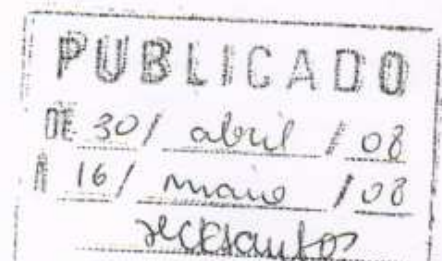 PUBLICADO
DE 30/ abril / 08
A 16/ maio / 08